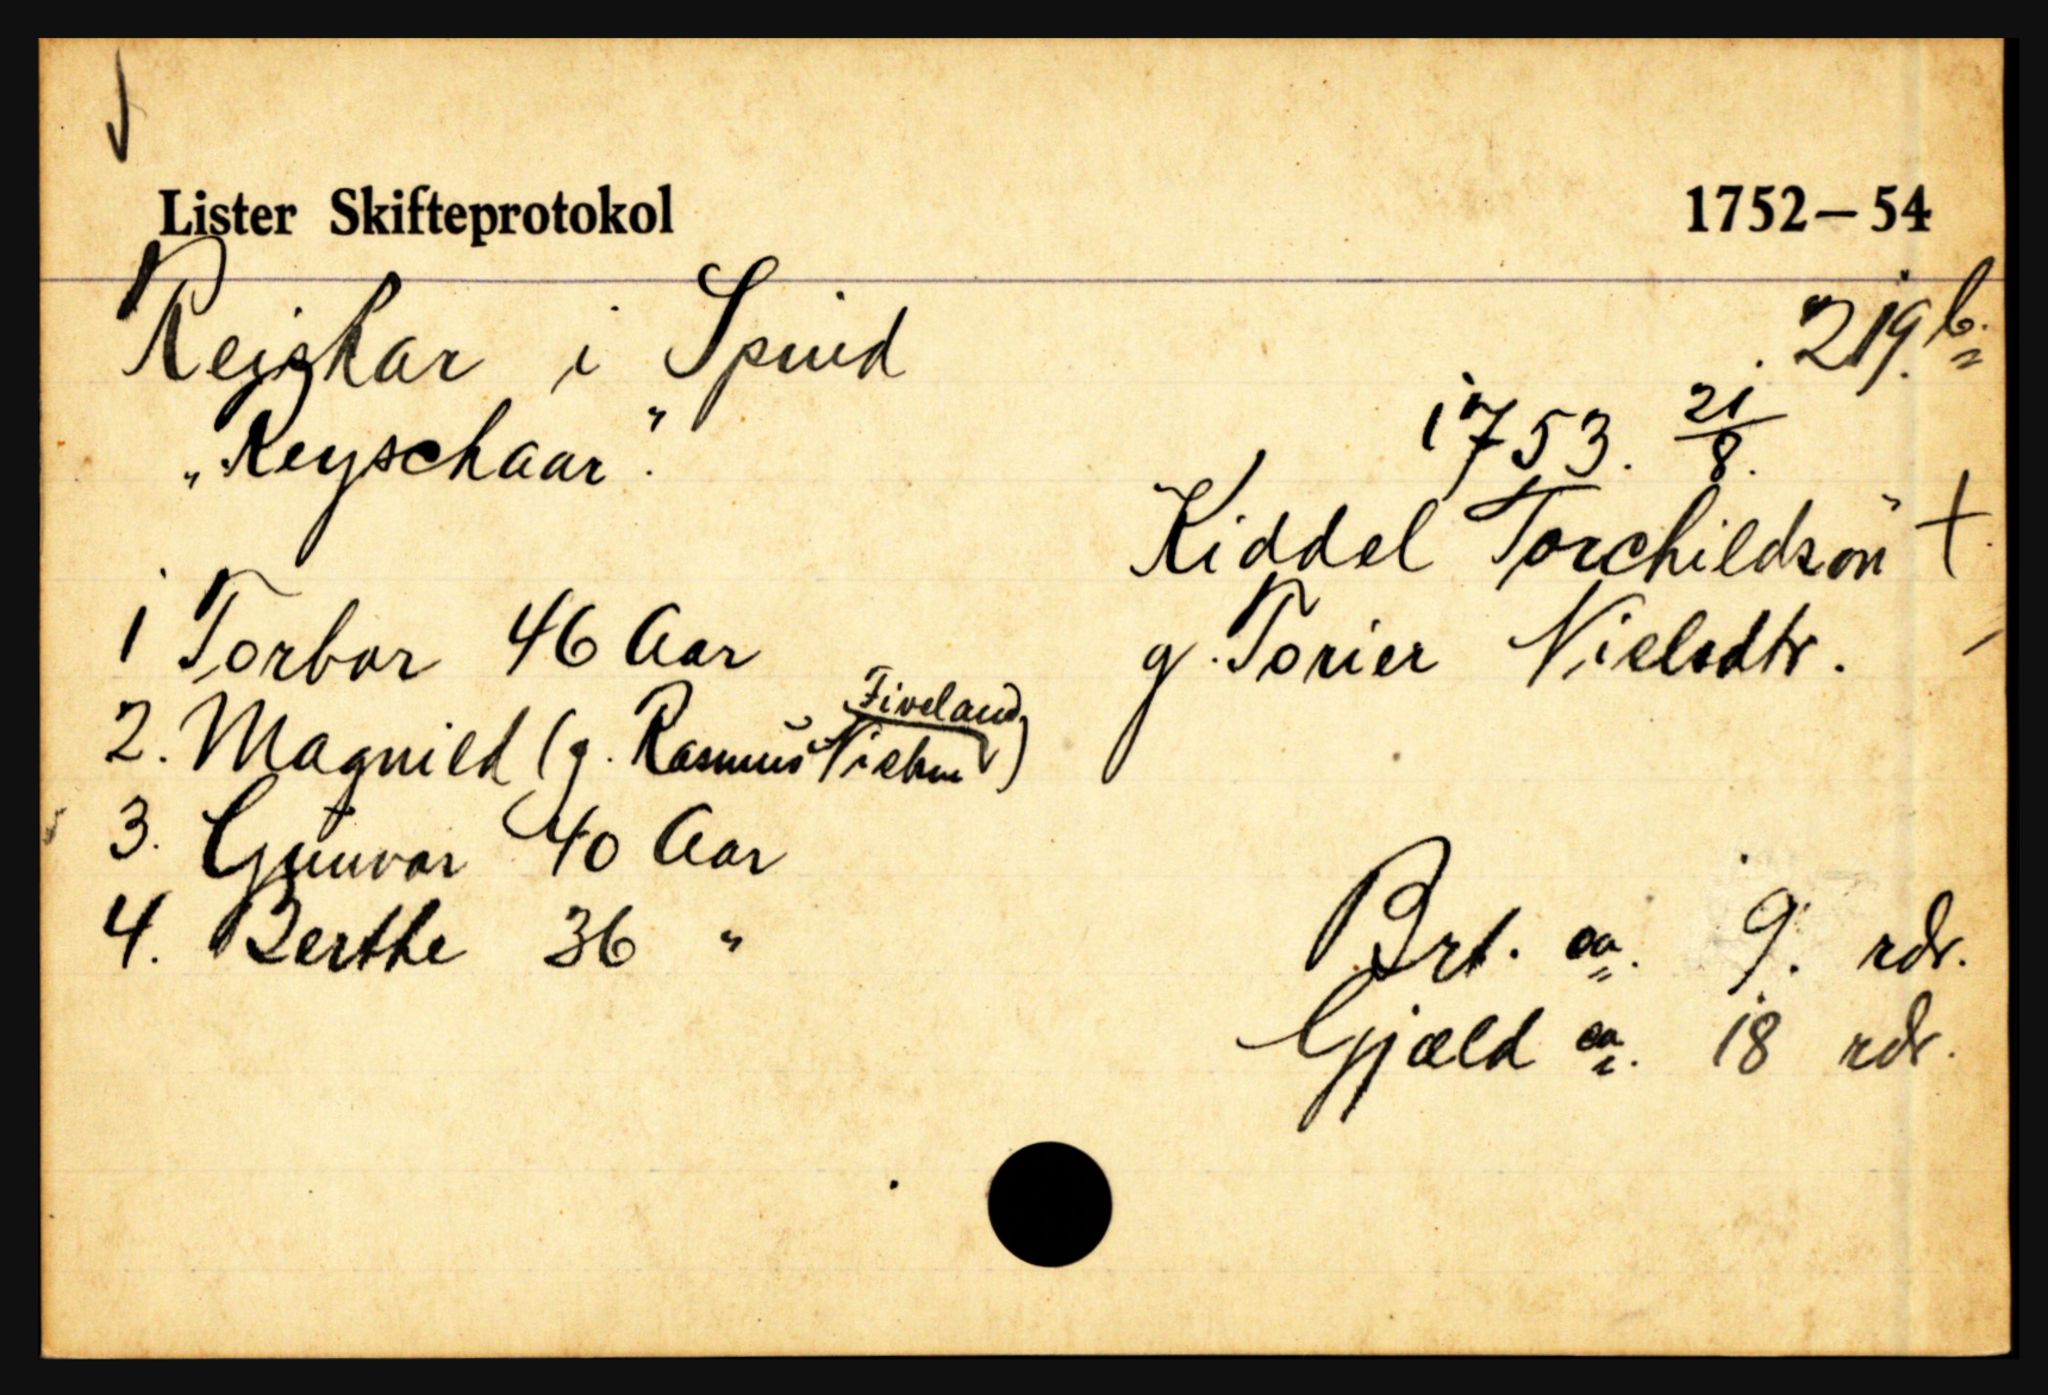 Lister Skifteprotokol 1752–54
Rejskar i Spind 219 b.
„Reyschaar".
1753. 21/8.
Kiddel Torchildsøn †.
g. Torier Nielsdtr.
1 Torbor 46 Aar
2. Magnild (g. Rasmus Nielsen Fiveland)
3. Gunvor 40 Aar
4. Berthe 36 "
Brt. ca. 9. rdr.
Gjæld ca. 18 rdr.